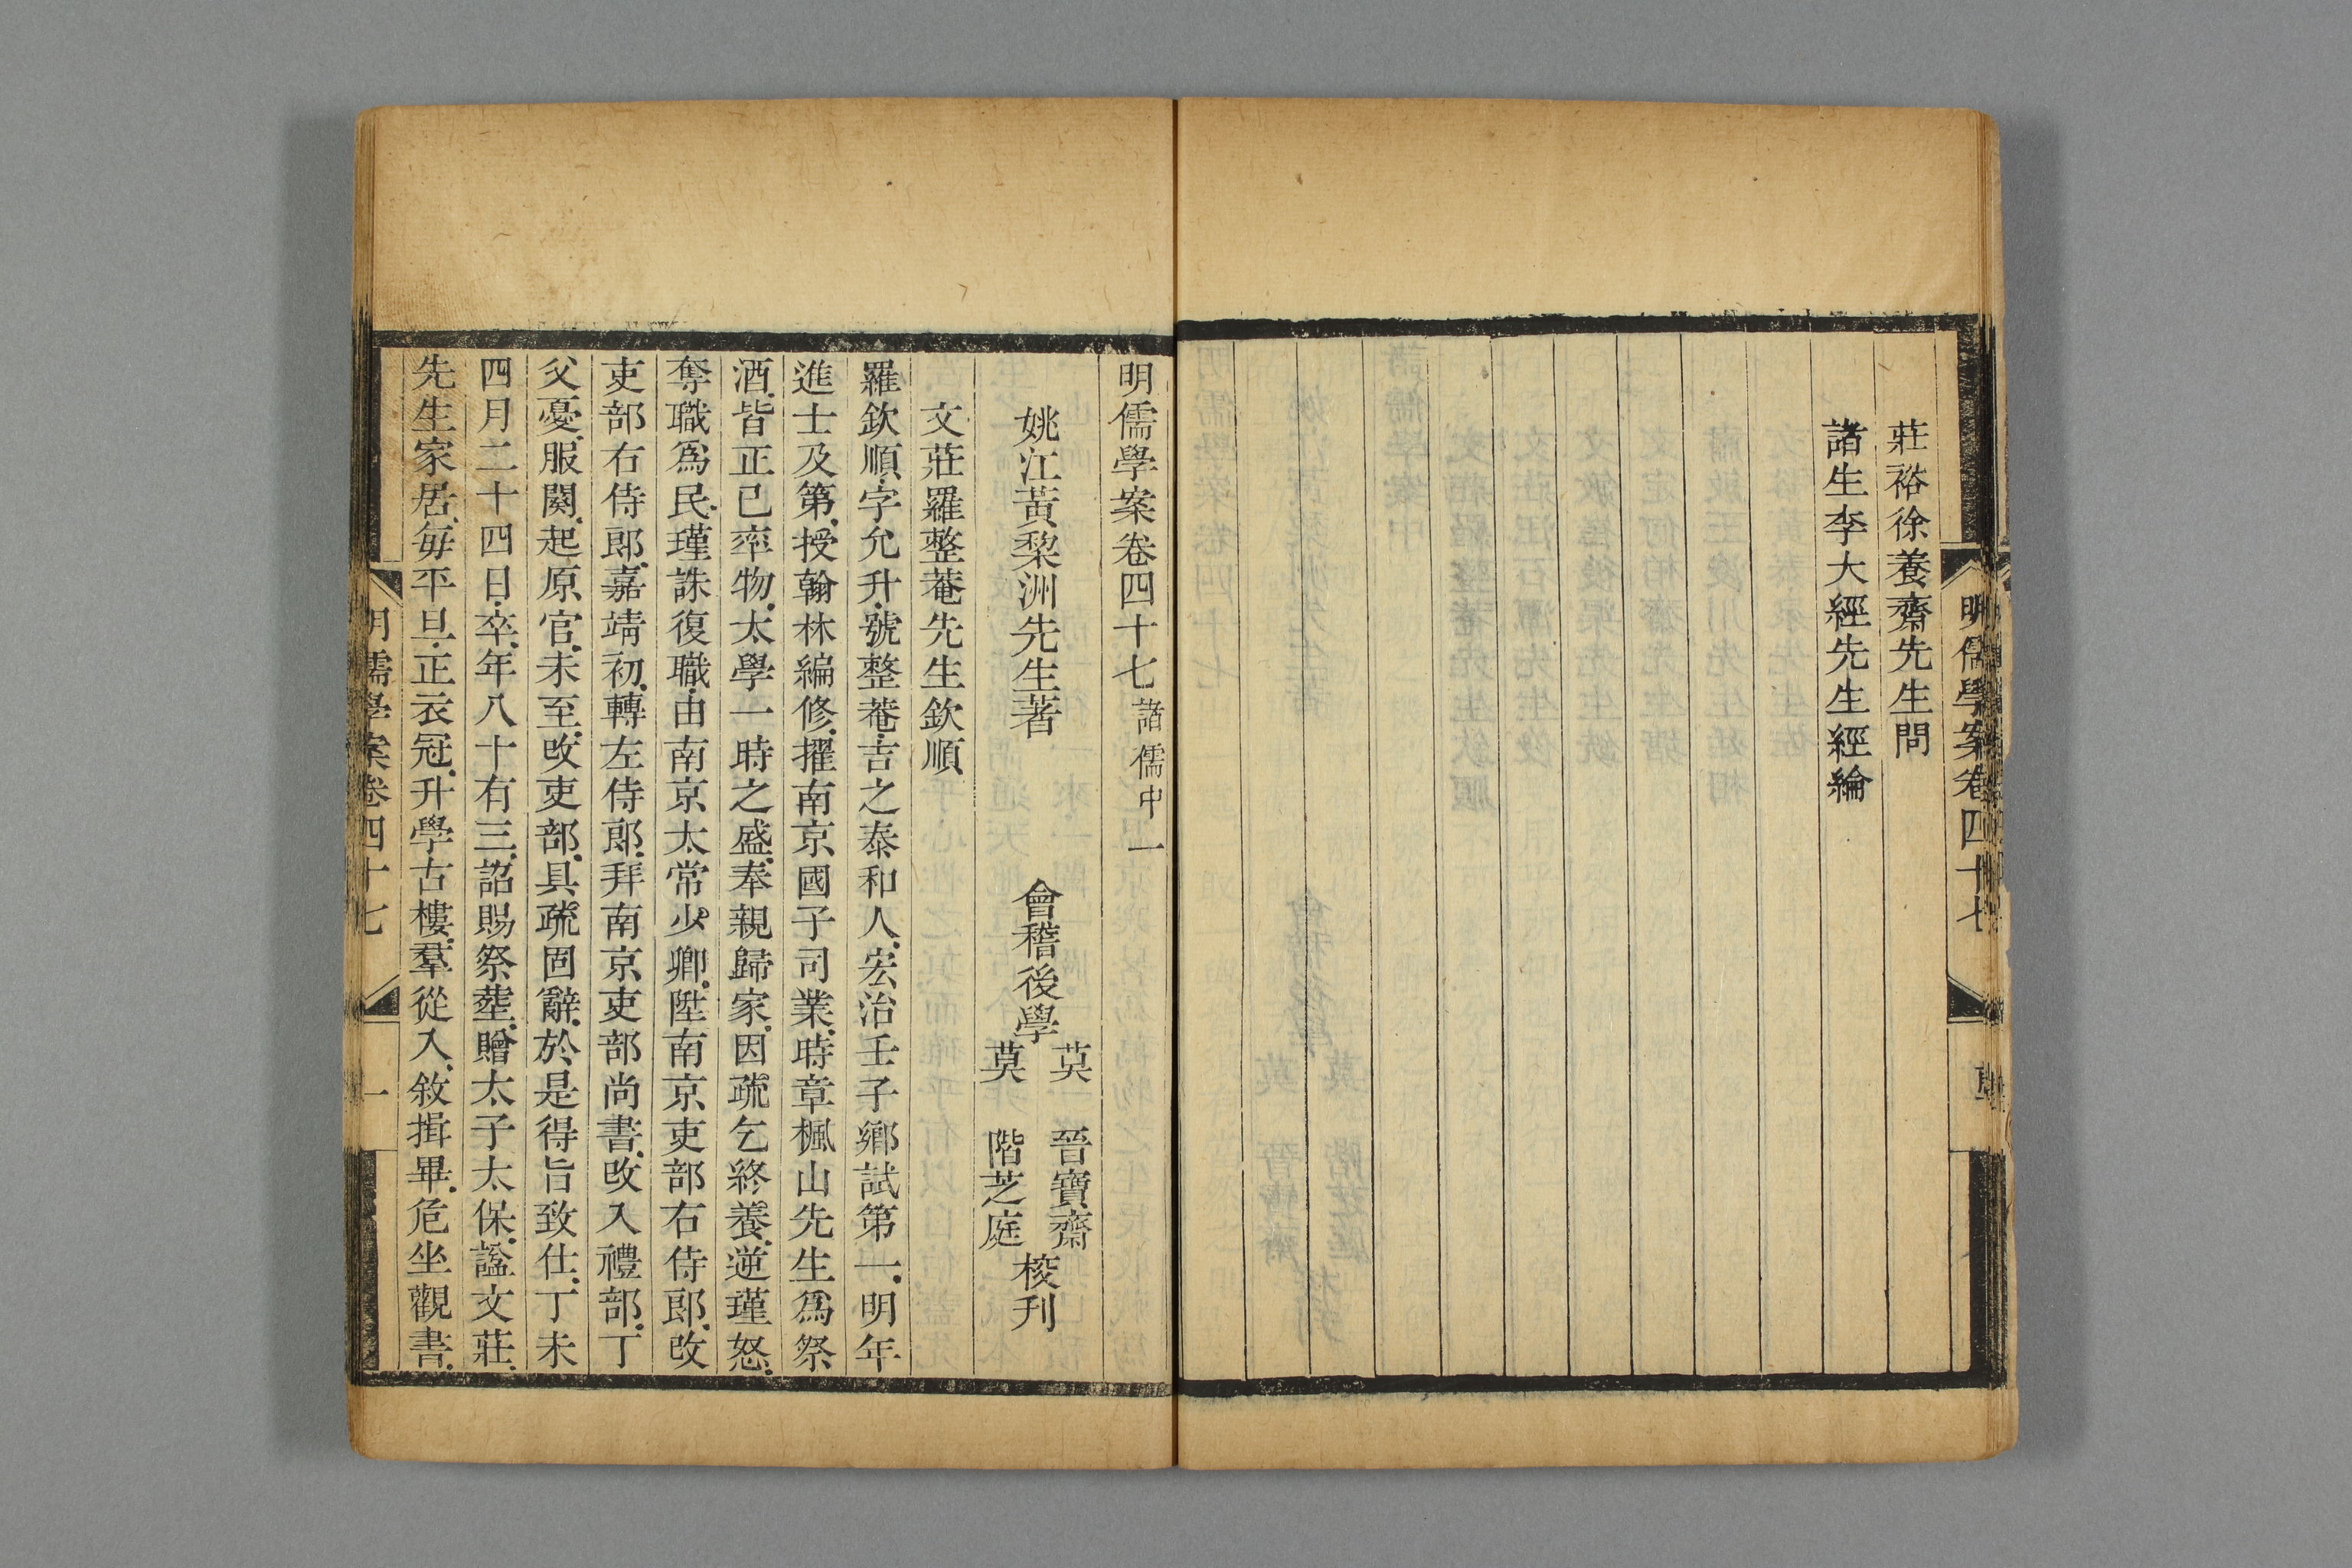 莊裕徐養齋先生問
諸生李大經先生經綸
明儒學案卷四十七
明儒學案卷四十七 諸儒中一
姚江黃棃洲先生著
會稽後學
莫 晉寶齋
莫 階芝庭
梭刊
文莊羅整菴先生欽順
羅欽順.字允升.號整菴.吉之泰和人.宏治壬子鄉試第一.明年
進士及第.授翰林編修.擢南京國子司業.時章楓山先生爲祭
酒.皆正已率物.太學一時之盛.奉親歸家.因疏乞終養.逆瑾怒.
奪職爲民.瑾誅復職.由南京太常少卿.陞南京吏部右侍郎.改
吏部右侍郎.嘉靖初.轉左侍郎.拜南京吏部尚書.改入禮部.丁
父憂.服闋.起原官.未至.改吏部.具疏固辭.於是得旨致仕.丁未
四月二十四日.卒.年八十有三.詔賜祭葬.贈太子太保.諡文莊.
先生家居.每平旦.正衣冠.升學古樓.羣從入.敘揖畢.危坐觀書.
明儒學案卷四十七
一